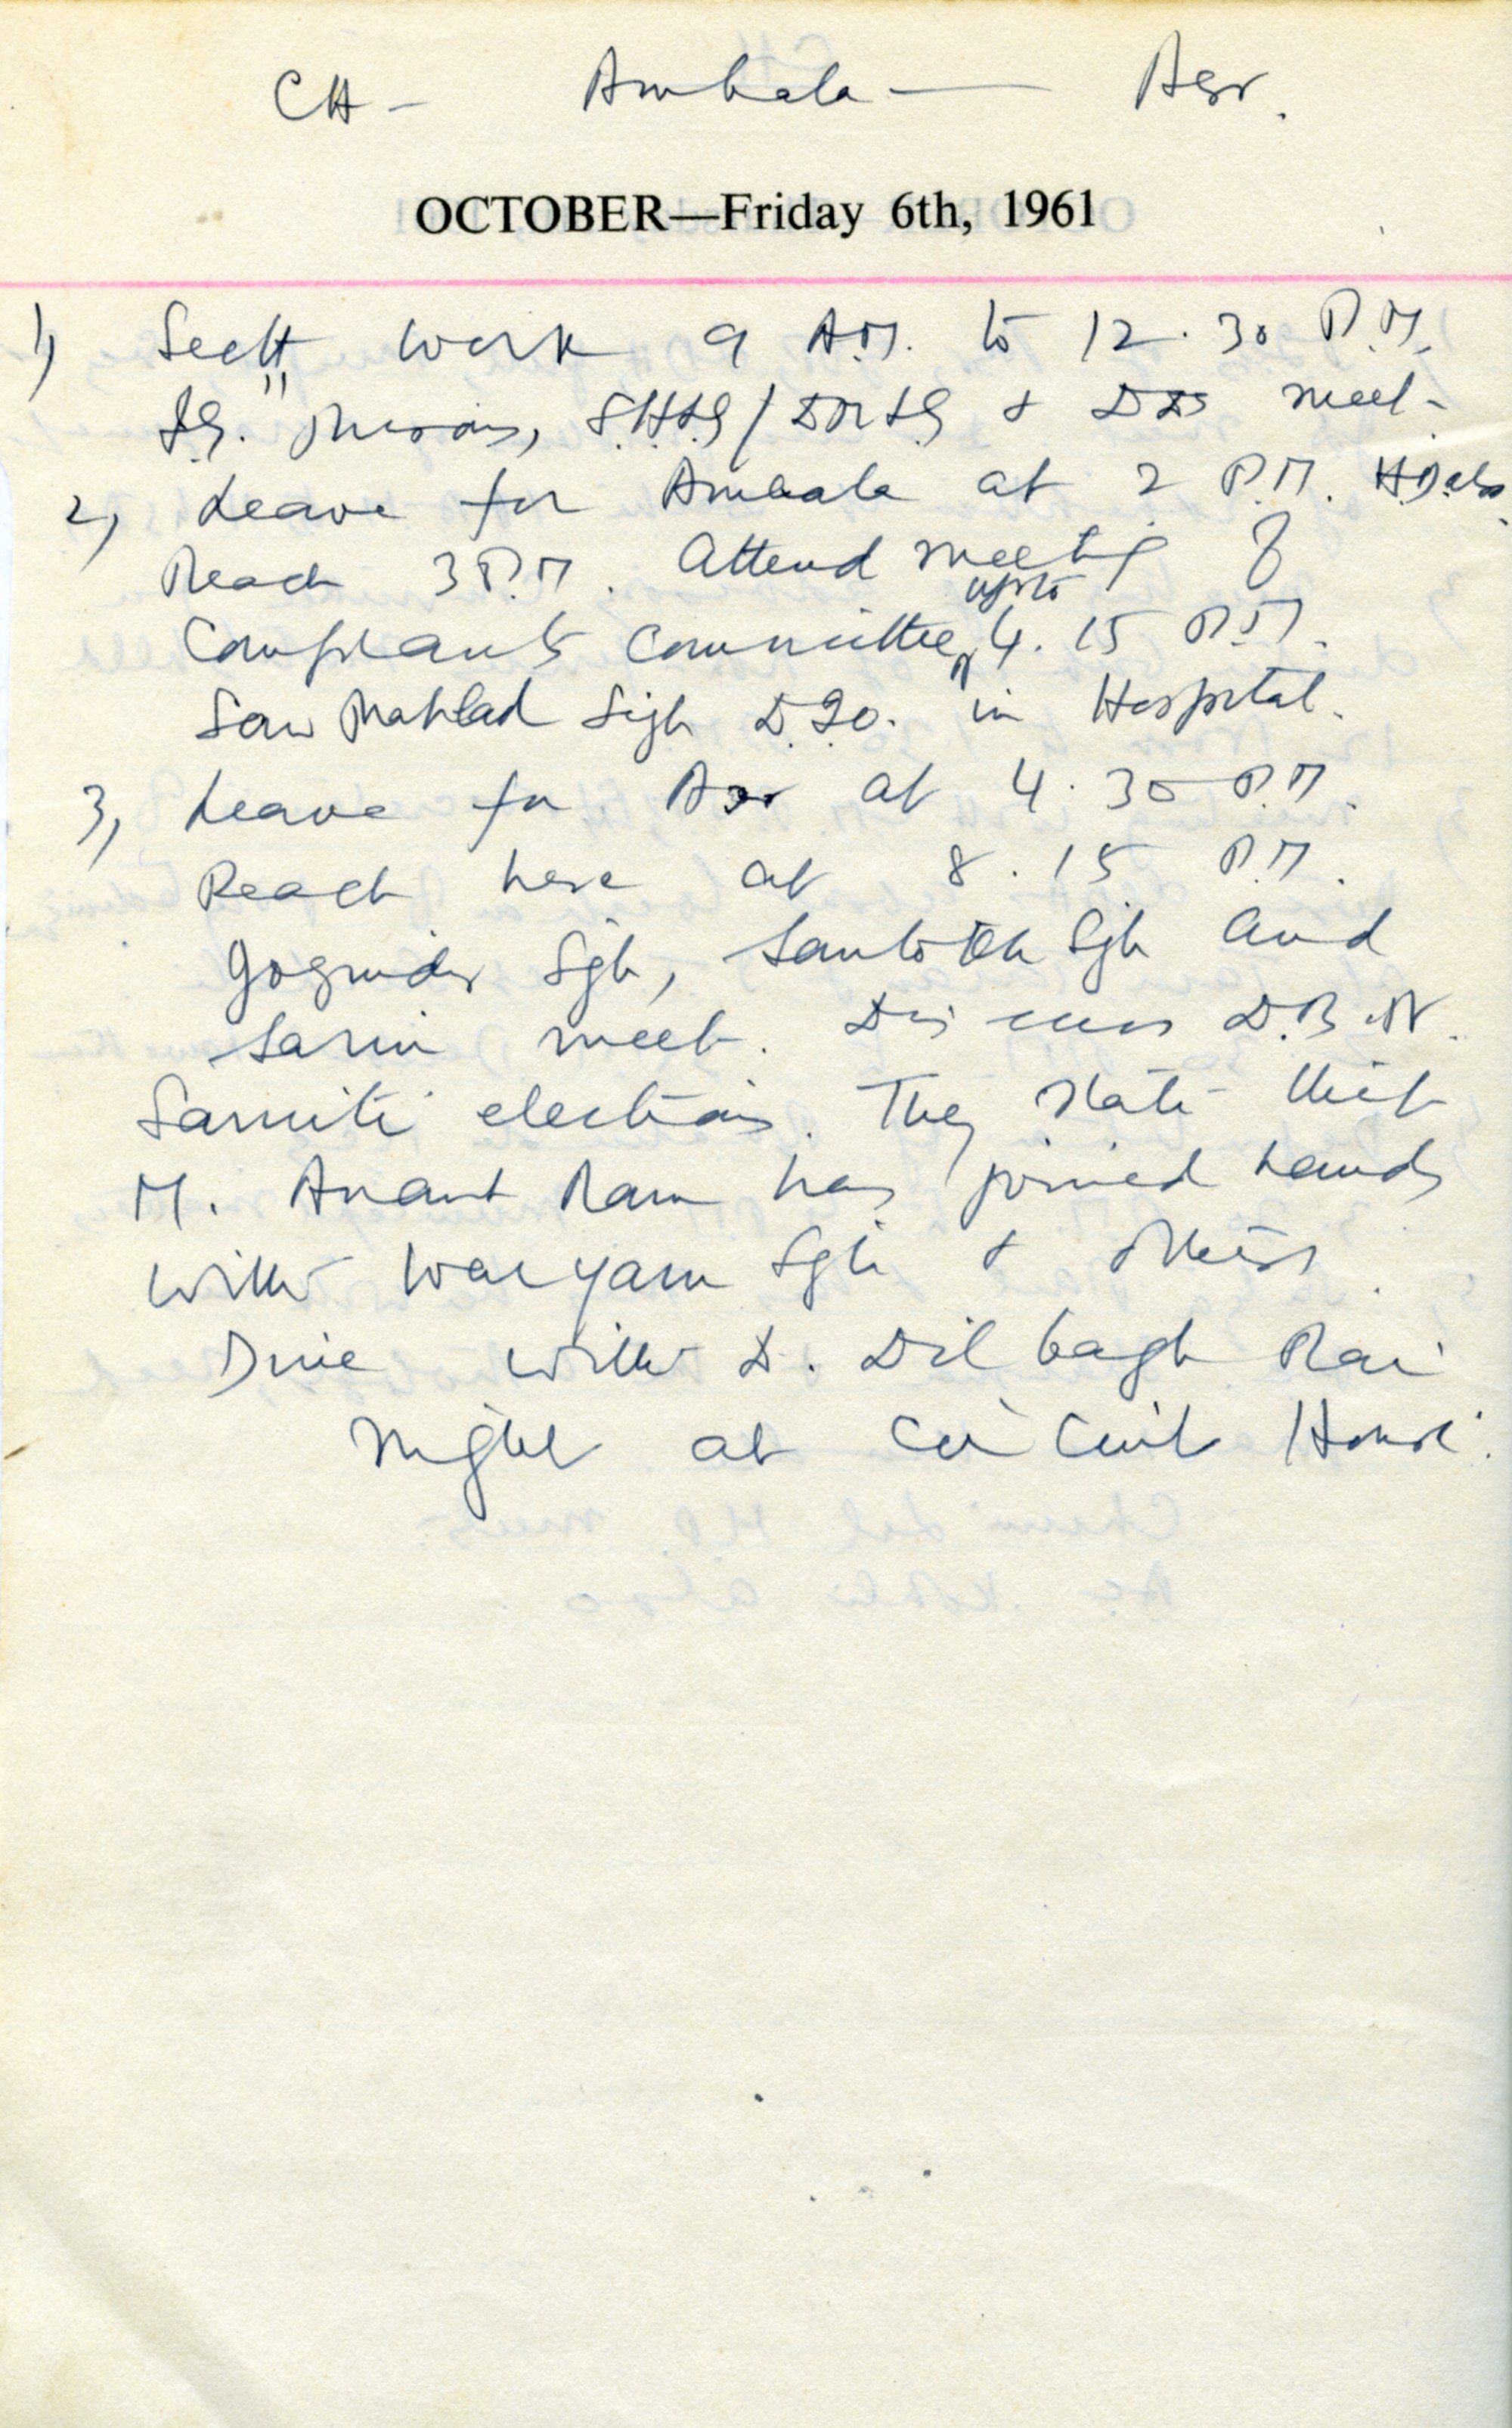 CH - Ambala — Asr.
OCTOBER—Friday 6th, 1961
1) Sectt work 9 A.M. to 12.30 P.M.
I.G. Prisons, S.H.L.G / D.M.L.G & meet.
2) Leave for Ambala at 2 P.M.
Reach 3 P.M. Attend meeting of
Complaints Committee, upto 4.15 P.M.
Saw Prahlad Sigh in Hospital.
3) Leave for Asr at 4.30 P.M.
Reach here at 8.15 P.M.
Joginder Sgh, Santokh Sgh and
Sarin meet. Discuss D.B.N.
Samiti elections. They state that
M. Anant Ram has joined hands
with Waryam Sgh & others.
Dine with D. Dilbagh Rai
Night at Circuit House.